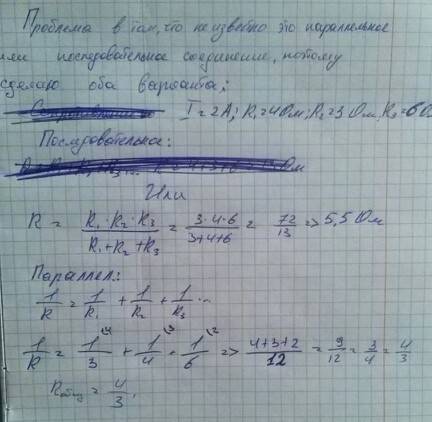 Проблема в том, что не известно это параллельное
или последовательное соединение, потому
сделаю оба варианта;
I = 2A; R₁=4 Ом; R₂=3 Ом, R₃=6 О
Последовательное:
Или
R = R₁·R₂·R₃ / R₁+R₂+R₃ = 3·4·6 / 3+4+6 = 72/13 => 5,5 Ом
Параллел:
1/R = 1/R₁ + 1/R₂ + 1/R₃
1/R = 1/3 (4 + 1/4 (3 + 1/6 (2 => 4+3+2 / 12 = 9/12 = 3/4 = 4/3
Rобщ = 4/3.